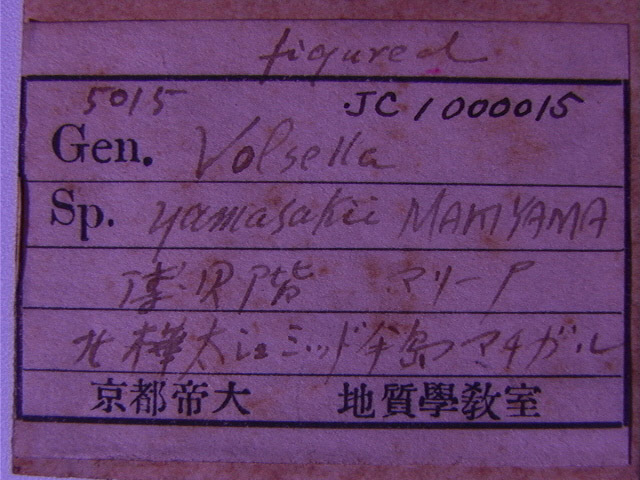 figured
5015 JC1000015
Gen. Volsella
Sp. yamasakii MAKIYAMA
階 マリーア
北樺太シュミッド半島マチガル
京都帝大 地質學教室